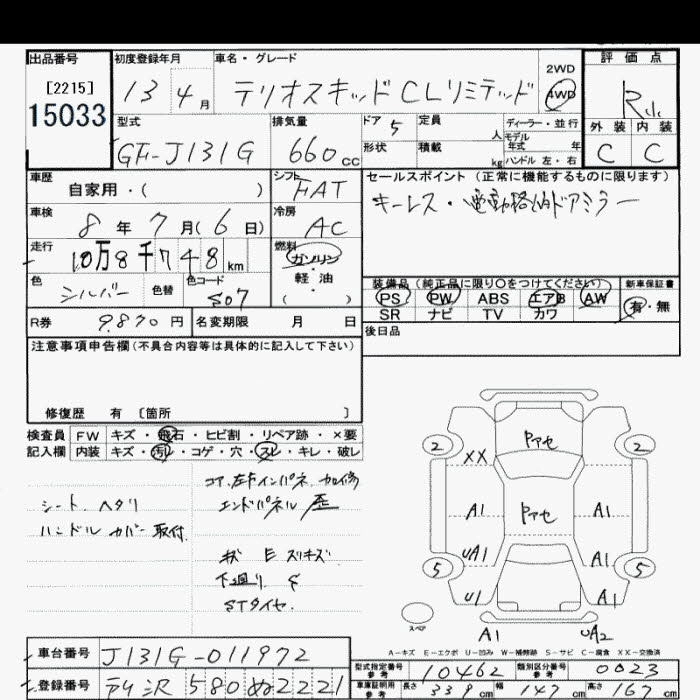 出品番号 初度登録年月 車名・グレード 評価点
[2215]
15033
13 4月 テリオスキッド CLリミテッド 2WD 4WD R小
型式 排気量 ドア 定員 ディーラー・並行 外装 内装
GF-J131G 660cc 5 人 モデル年式 年 C C
形状 積載 kg ハンドル 左・右
車歴 シフト セールスポイント(正常に機能するものに限ります)
自家用・( ) FAT キーレス・電動格納ドアミラー
車検 冷房
8年7月(6日) AC
走行 燃料
10万8千748km ガソリン
軽油
( )
色 色替 色コード 装備品(純正品に限り○をつけてください) 新車保証書
シルバー S07 PS PW ABS エアB AW 有・無
SR ナビ TV カワ
R券 9,870円 名変期限 月 日 後日品
注意事項申告欄(不具合内容等は具体的に記入して下さい)
修復歴 有 〔箇所 〕
検査員 FW キズ・飛石・ヒビ割・リペア跡・×要
記入欄 内装 キズ・汚れ・コゲ・穴・スレ・キレ・破レ
コア、左右インパネ 加修
シート ヘタリ エンドパネル 歪
ハンドル カバー 取付
キズ E スリキズ
下廻り S
STタイヤ.
2 Pアセ 2
XX
A1 Pアセ A1
UA1 A1
5 5
U1 A1
スペア A1 UA2
A-キズ E-エクボ U-凹み W-補修跡 S-サビ C-腐食 XX-交換済
車台番号 J131G-011972 型式指定番号 参考 10462 類別区分番号 参考 0023
登録番号 所沢 580 ぬ 2221 車庫証明用 参考 長さ 339cm 幅 147cm 高さ 167cm